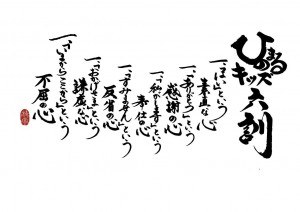 ひのまるキッズ六訓
一、「はい」という
素直な心
一、「ありがとう」という
感謝の心
一、「私がします」という
奉仕の心
一、「すみません」という
反省の心
一、「おかげさま」という
謙虚な心
一、「いまからここから」という
不屈の心